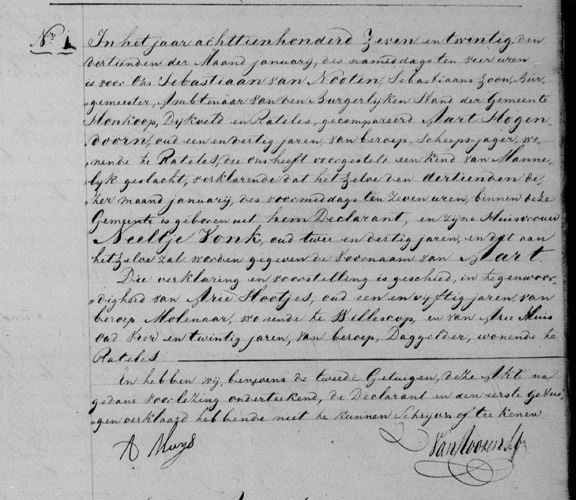 Nr. 1
In het jaar achttienhonderd Zeven en twintig, den
dertienden der Maand january, des namiddags ten vier uren
is voor Ons Sebastiaan van Nooten Sebastiaans Zoon, Bur,,
,,gemeester, Ambtenaar van den Burgerlijken Stand der Gemeente
Honkoop, Dykveld en Rateles, gecompareerd Mart Hogen
doorn, oud een en dertig jaren, van beroep, Scheeps-jager, wo,,
,,nende te Rateles, die ons heeft voorgesteld een kind van Manne,,
,,lyk geslacht, verklarende dat het zelve den dertienden de,,
,,zer maand january, des voormiddags ten Zeven uren, binnen deze
Gemeente is geboren uit hem Declarant, en zyne Huisvrouw
Neeltje Vonk, oud twee en dertig jaren, en dat aan
het zelve zal worden gegeven de Voornaam van Mart
Die verklaring en voorstelling is geschied, in tegenwoor,,
,,digheid van Arie Slootjes, oud een en vyftig jaren, van
beroep Molenaar, wonende te Willescop, en van Arie Muis
oud Vier en twintig jaren, van beroep, Daggelder, wonende te
Rateles
En hebben wy, benevens de tweede Getuigen, deze Akte na
gedane voorlezing onderteekend, de Declarant en den eerste Getui,,
,,gen verklaard hebbende niet te kunnen Schryven of teekenen
A Muys
Van Nooten